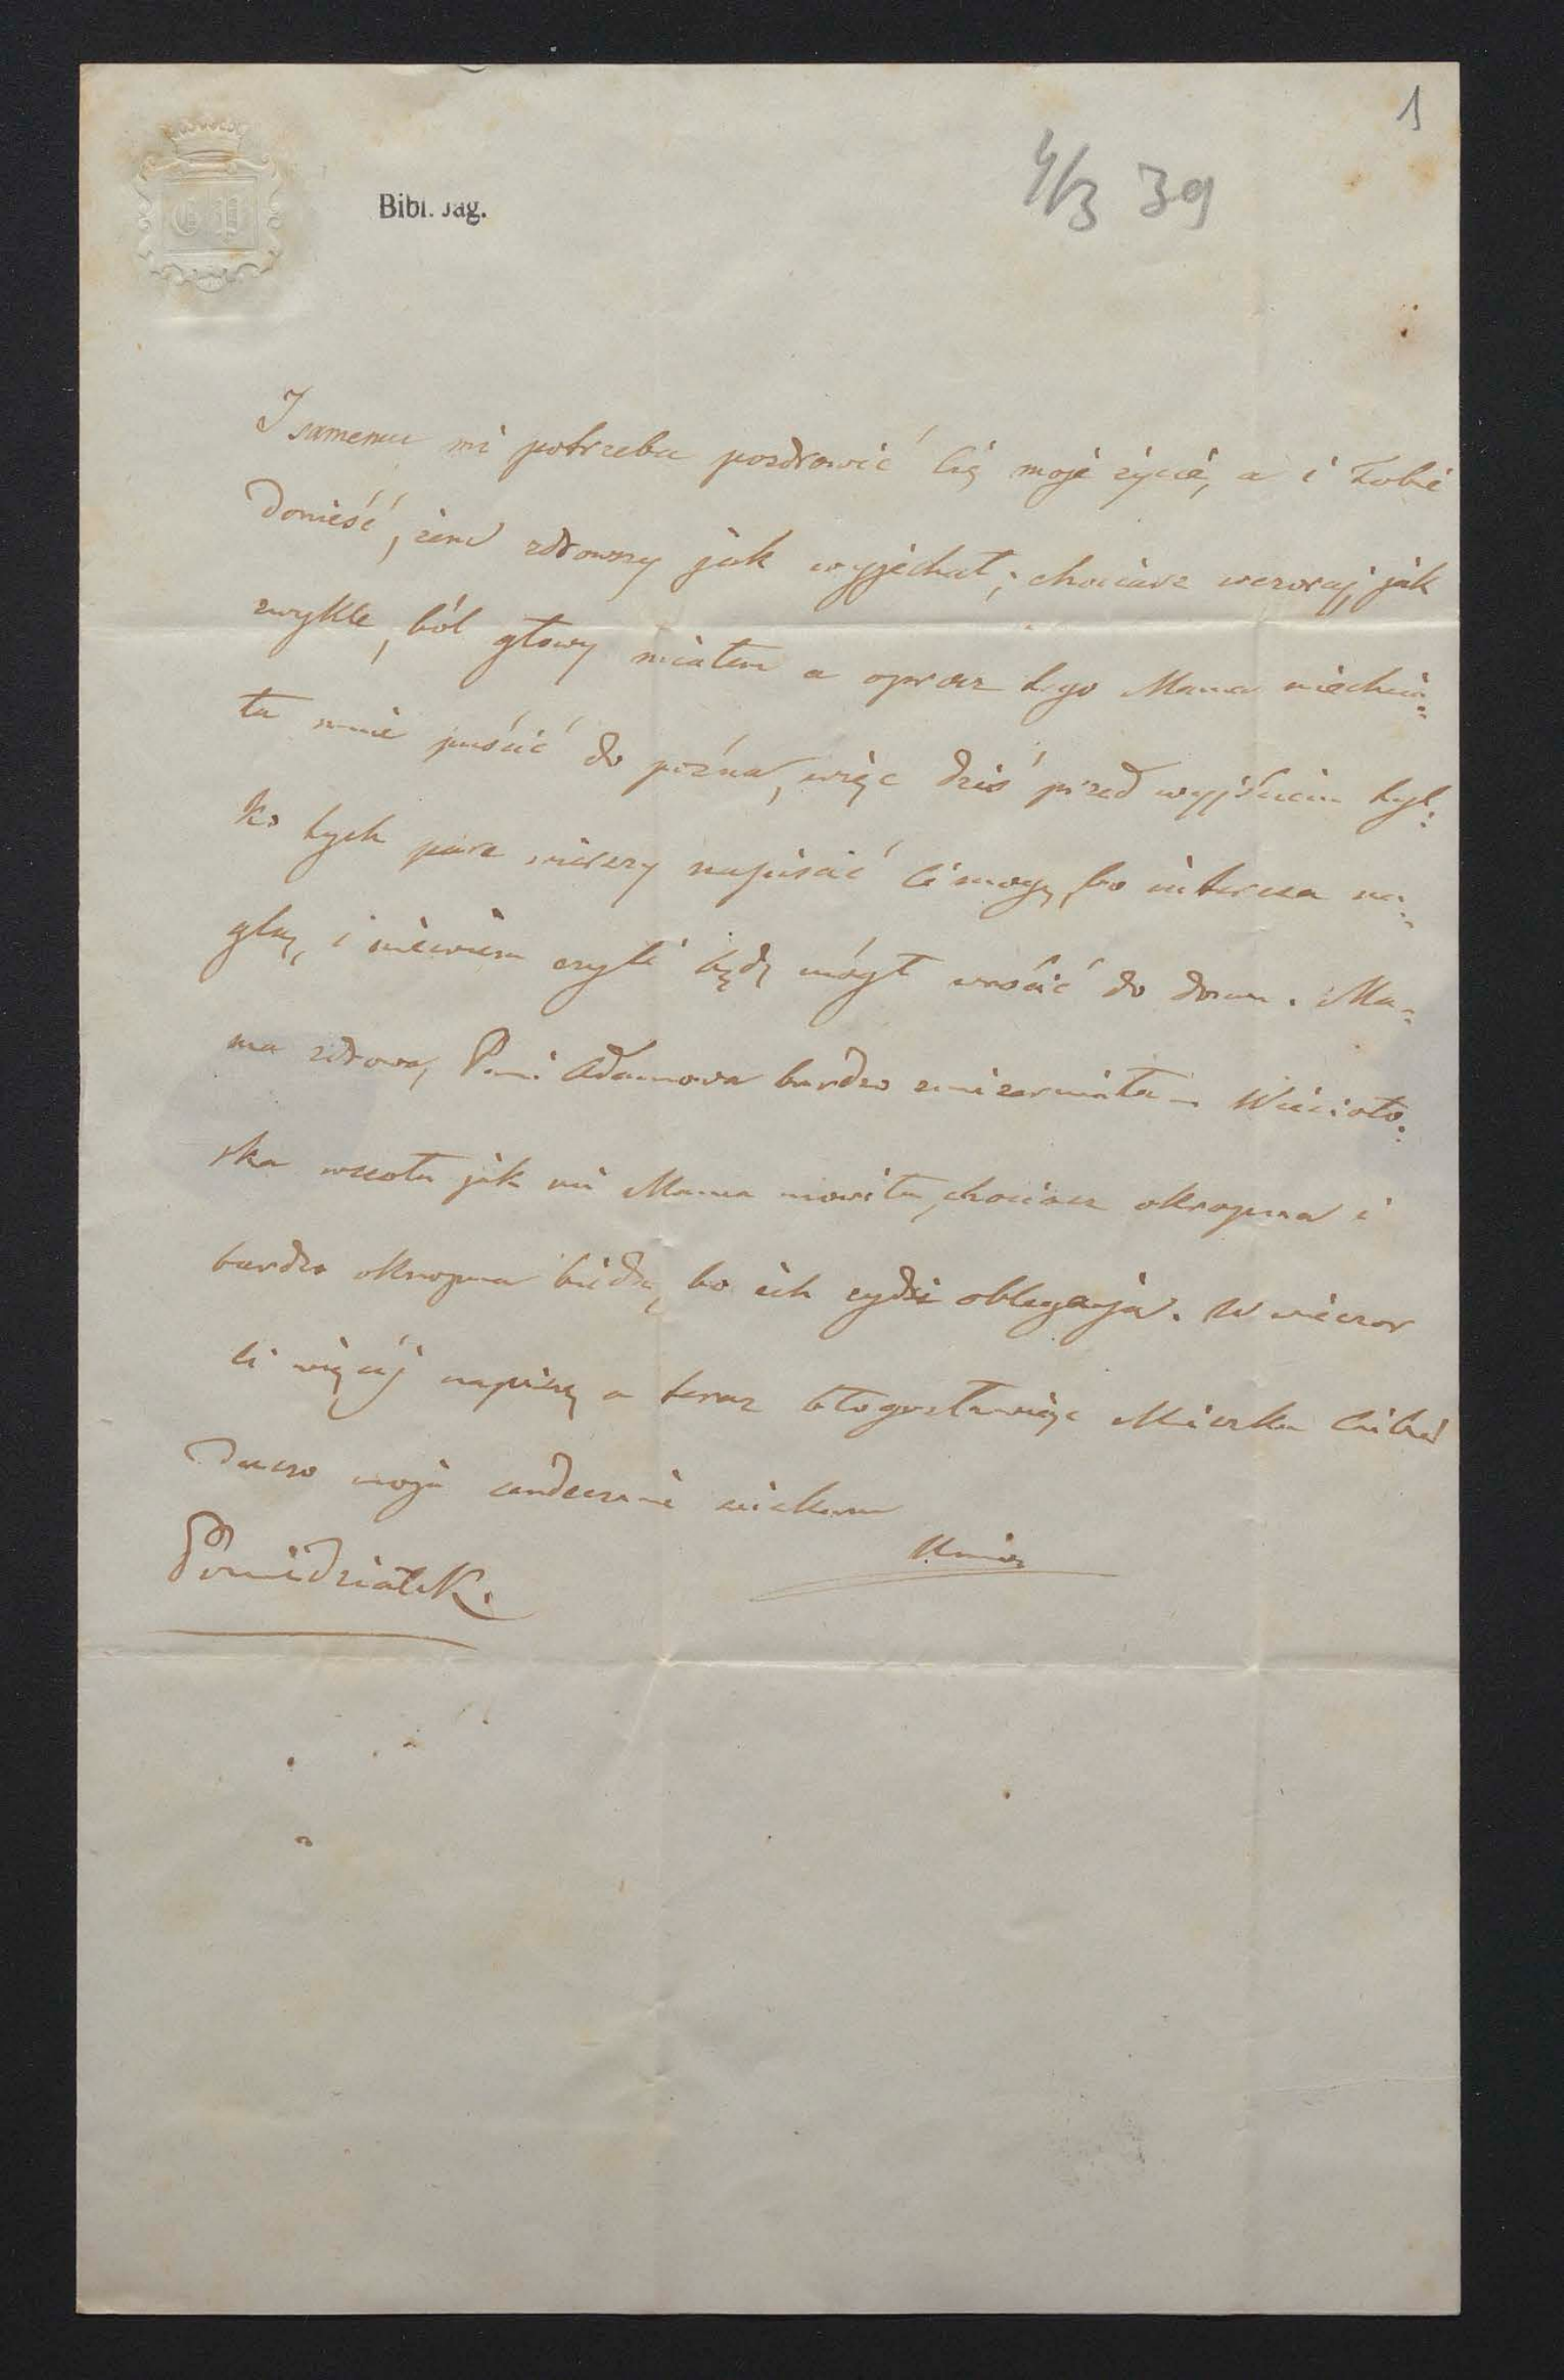 1
4/3 39
G P
Bibl. Jag.
I samemu mi potrzeba pozdrowić Cię moje życie, a i Tobie
donieść, żem zdrowszy jak wyjechał; chociasz wczoraj jak
zwykle, ból głowy miałem a oprocz tego Mama niechcia=
ła mnie puścić do pózna, więc dziś przed wyjściem tyl=
ko tych pare wierszy napisać Ci mogę, bo interesa na=
glą, i niewiem czyli będę mógł wrócić do domu. Ma=
ma zdrowa, Pani Adamowa bardzo zmizerniała -
ska wesoła jak mi Mama mowiła, chociasz okropna i
bardzo okropna bieda, bo ich żydzi oblegają. W wieczor
Ci więcéj napiszę a teraz błogosławiąc Mieczka Ciebie
duszo moja serdecznie ściskam
Poniedziałek.